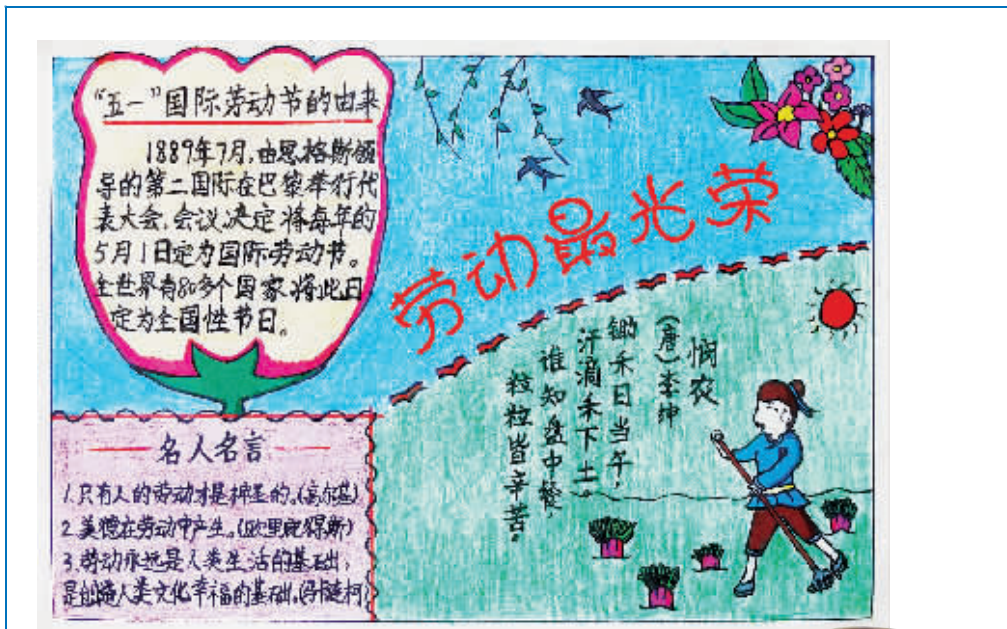 “五一”国际劳动节的由来
1889年7月,由恩格斯领
导的第二国际在巴黎举行代
表大会,会议决定将每年的
5月1日定为国际劳动节。
全世界有80多个国家将此日
定为全国性节日。
劳动最光荣
悯农
(唐)李绅
锄禾日当午,
汗滴禾下土。
谁知盘中餐,
粒粒皆辛苦。
名人名言
1.只有人的劳动才是神圣的。(高尔基)
2.美德在劳动中产生。(欧里庇得斯)
3.劳动永远是人类生活的基础,
是创造人类文化幸福的基础。(马卡连柯)